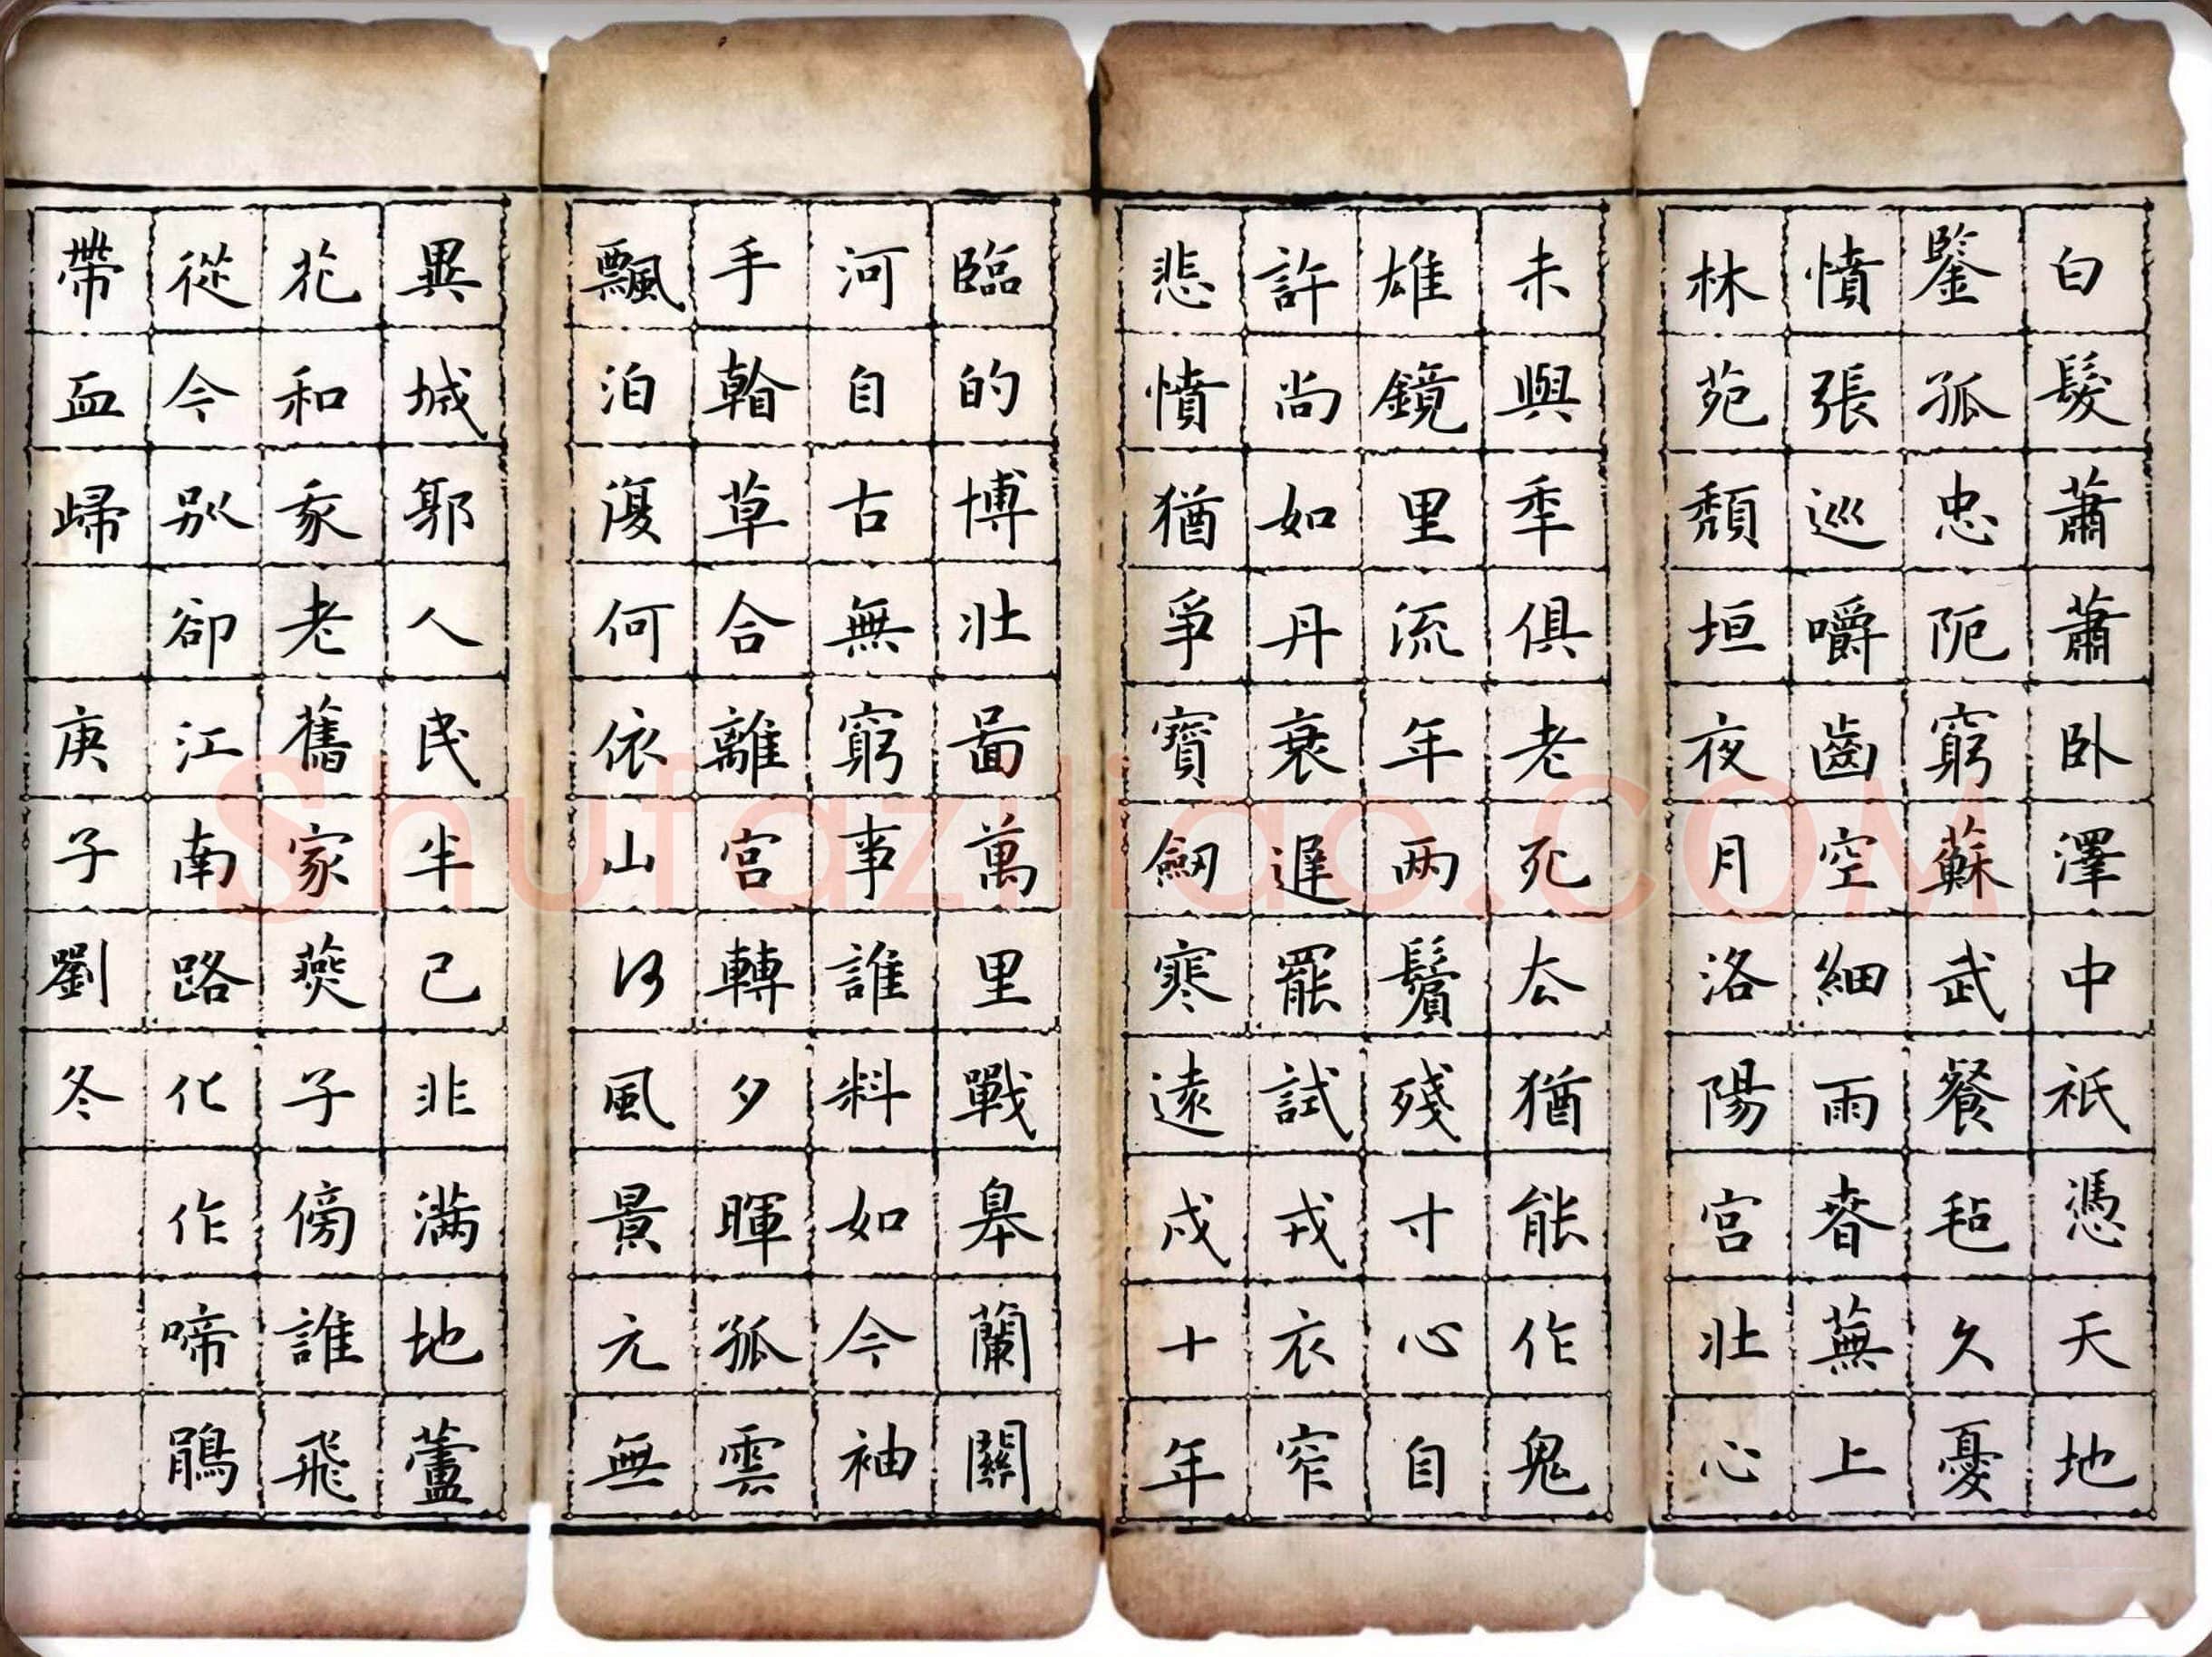 白髮蕭蕭臥澤中祇憑天地
鑒孤忠阨窮蘇武餐毡久憂
憤張巡嚼齒空細雨春蕪上
林苑頹垣夜月洛陽宮壯心
未與年俱老死去猶能作鬼
雄鏡里流年两鬢殘寸心自
許尚如丹衰遲罷試戎衣窄
悲憤猶爭寶劍寒遠戍十年
臨的博壯啚萬里戰皋蘭關
河自古無窮事誰料如今袖
手看草合離宮轉夕暉孤雲
飄泊復何依山河風景元無
異城郭人民半已非滿地蘆
花和我老舊家燕子傍誰飛
從今別卻江南路化作啼鵑
帶血歸 庚子劉冬
Shufaziliao.COM